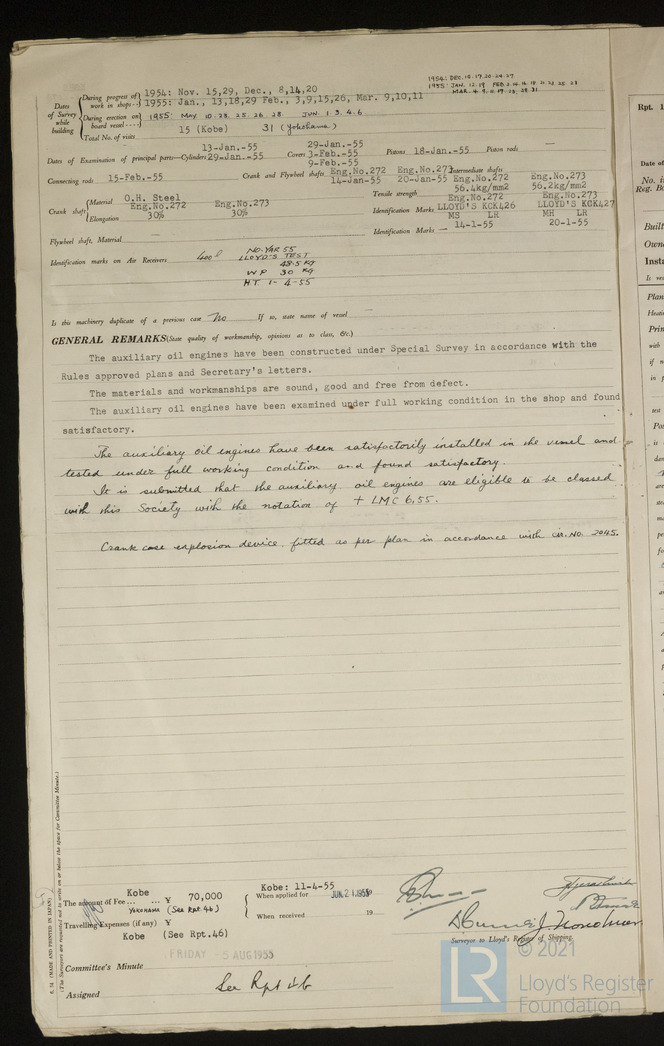 1954: DEC. 10.17.20.24.27
1955: JAN. 12.19 FEB.
MAR. 4. 8.
Dates of Survey while building
During progress of work in shops-- 1954: Nov. 15,29, Dec., 8,14,20
1955: Jan., 13,18,29 Feb., 3,9,15,26, Mar. 9,10,11
During erection on board vessel---- 1955: MAY 10.23.25.26.28 JUN. 1.3.4.6
Total No. of visits 15 (Kobe) 31 (Yokohama)
13-Jan.-55 29-Jan.-55
Dates of Examination of principal parts—Cylinders 29-Jan.-55 Covers 3-Feb.-55 Pistons 18-Jan.-55 Piston rods —
9-Feb.-55
Connecting rods 15-Feb.-55 Crank and Flywheel shafts Eng.No.272 Eng.No.273 Intermediate shafts
14-Jan-55 20-Jan-55
Crank shaft Material O.H. Steel Tensile strength Eng.No.272 56.4kg/mm2 Eng.No.273 56.2kg/mm2
Elongation Eng.No.272 30% Eng.No.273 30% Identification Marks Eng.No.272 LLOYD'S KCK426 Eng.No.273 LLOYD'S KCK427
MS LR MH LR
14-1-55 20-1-55
Flywheel shaft, Material — Identification Marks —
Identification marks on Air Receivers 400 l NO. YAR 55
LLOYD'S TEST
48.5 KG
WP 30 KG
HT 1-4-55
Is this machinery duplicate of a previous case No If so, state name of vessel
GENERAL REMARKS (State quality of workmanship, opinions as to class, &c.)
The auxiliary oil engines have been constructed under Special Survey in accordance with the
Rules approved plans and Secretary's letters.
The materials and workmanships are sound, good and free from defect.
The auxiliary oil engines have been examined under full working condition in the shop and found
satisfactory.
The auxiliary oil engines have been satisfactorily installed in the vessel and
tested under full working condition and found satisfactory.
It is submitted that the auxiliary oil engines are eligible to be classed
with this Society with the notation of + LMC 6,55.
Crank case explosion device fitted as per plan in accordance with cir. No. 2045.
5, 54 (MADE AND PRINTED IN JAPAN)
(The Surveyors are requested not to write on or below the space for Committee Minute.)
The amount of Fee ... ... Kobe ¥ 70,000 When applied for Kobe: 11-4-55
JUN 21 1955 19
YOKOHAMA (See Rpt 4b)
Travelling Expenses (if any) ¥ When received 19
Kobe (See Rpt.4b)
Surveyor to Lloyd's Register of Shipping.
FRIDAY 5 AUG 1955
Committee's Minute
Assigned See Rpt 4b
Rpt. 
Date of
No. i
Reg. B
Built
Own
Insta
Plan
Prin
with
LR
© 2021
Lloyd's Register
Foundation